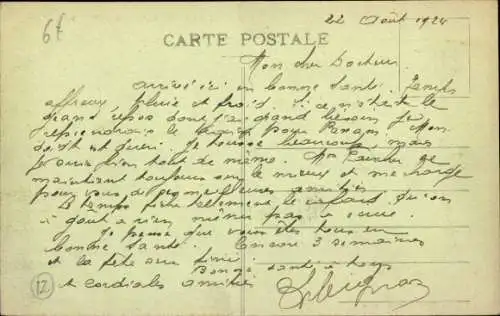 6f
22 Août 1924
CARTE POSTALE
Mon cher Docteur
Arrivé ici en bonne santé. Temps
affreux, pluie et froid. Si ce n'était le
grand repos dont j'ai grand besoin je
reprendrais le train pour Mon
doigt est guéri. Je tousse beaucoup, mais
je vais bien tout de même. se
maintient toujours au mieux et me charge
pour vous de ses meilleures amitiés
Le temps fiche tellement le cafard qu'on
a goût à rien même pas à
Je pense que vous êtes tous en
bonne santé. Encore 3 semaines
et la fête sera finie
Bonne santé à tous
et cordiales amitiés
12